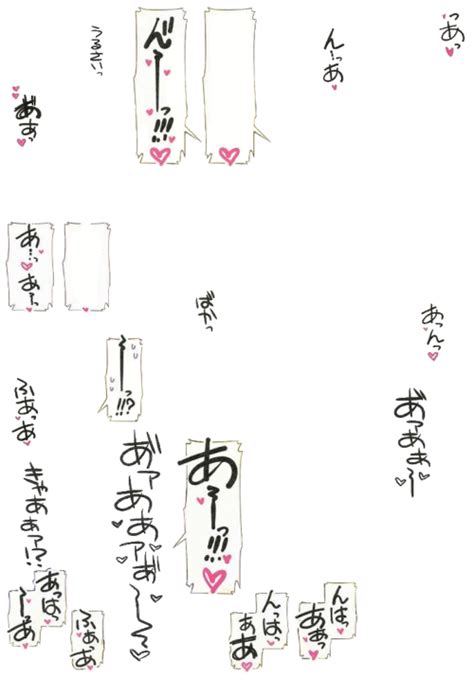 あっ
っ
ん〜あ
ん゛ーーっ!!!
うるさいっ
あ゛あっ
あんっ
ばかっ
あ…っ
あ…っ
ーーっ!!?
あ゛ァあぁ〜
あーーっ!!!
あ゛ァあぁァあ゛〜〜
ふあっあ
きゃあぁァ!?
んはっ
ああっ
んはっ
ああ
あっは
〜あ
ふあっあ